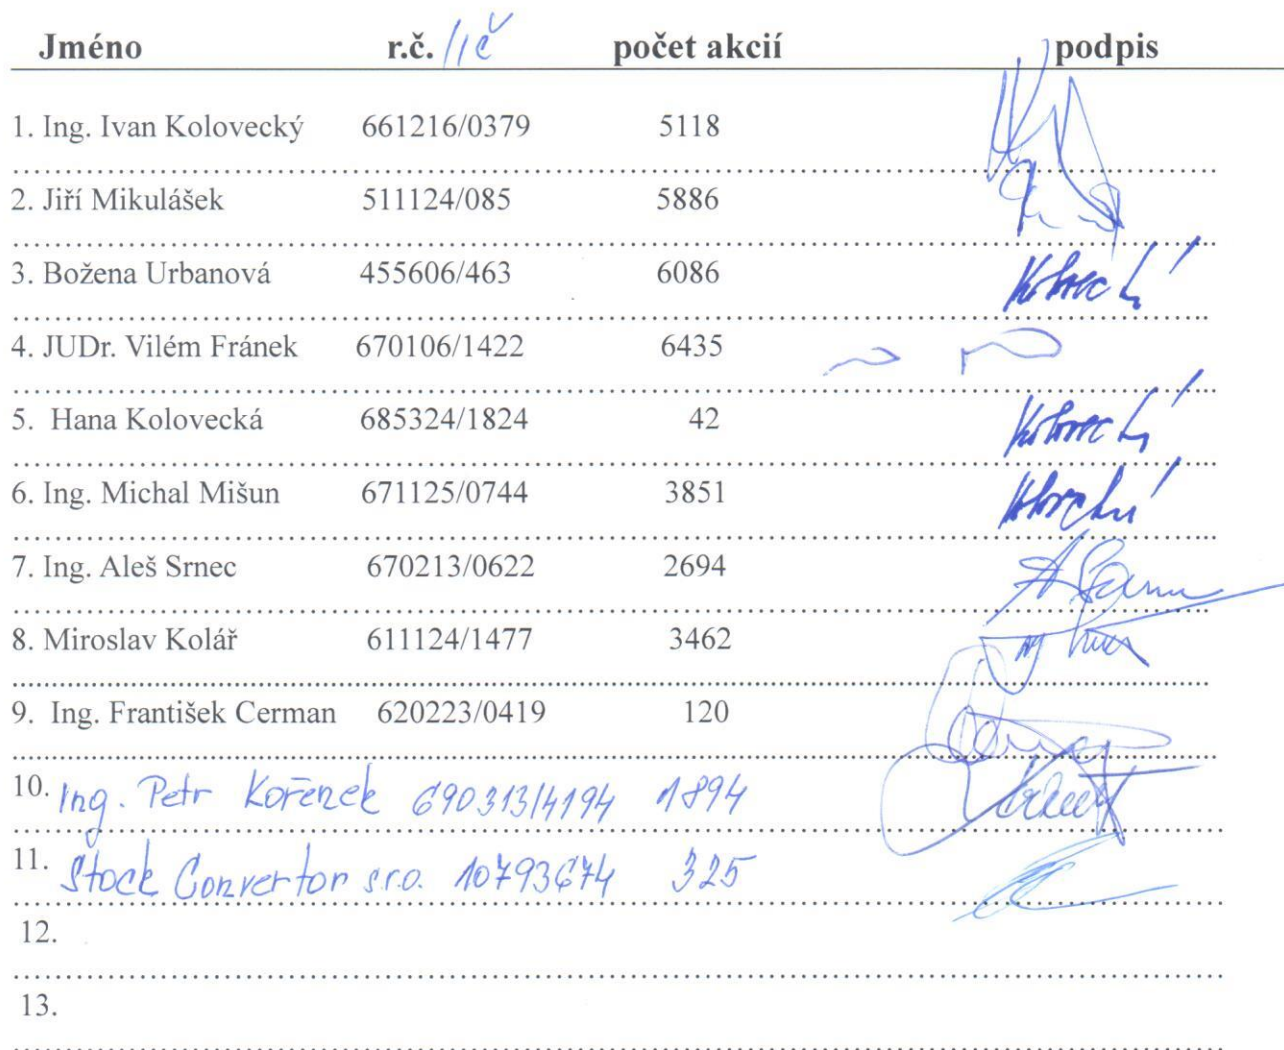 Jméno r.č. /IČ počet akcií podpis
1. Ing. Ivan Kolovecký 661216/0379 5118
2. Jiří Mikulášek 511124/085 5886
3. Božena Urbanová 455606/463 6086
4. JUDr. Vilém Fránek 670106/1422 6435
5. Hana Kolovecká 685324/1824 42
6. Ing. Michal Mišun 671125/0744 3851
7. Ing. Aleš Srnec 670213/0622 2694
8. Miroslav Kolář 611124/1477 3462
9. Ing. František Cerman 620223/0419 120
10. Ing. Petr Kořenek 690313/4194 1894
11. Stock Convertor s.r.o. 10793674 325
12.
13.